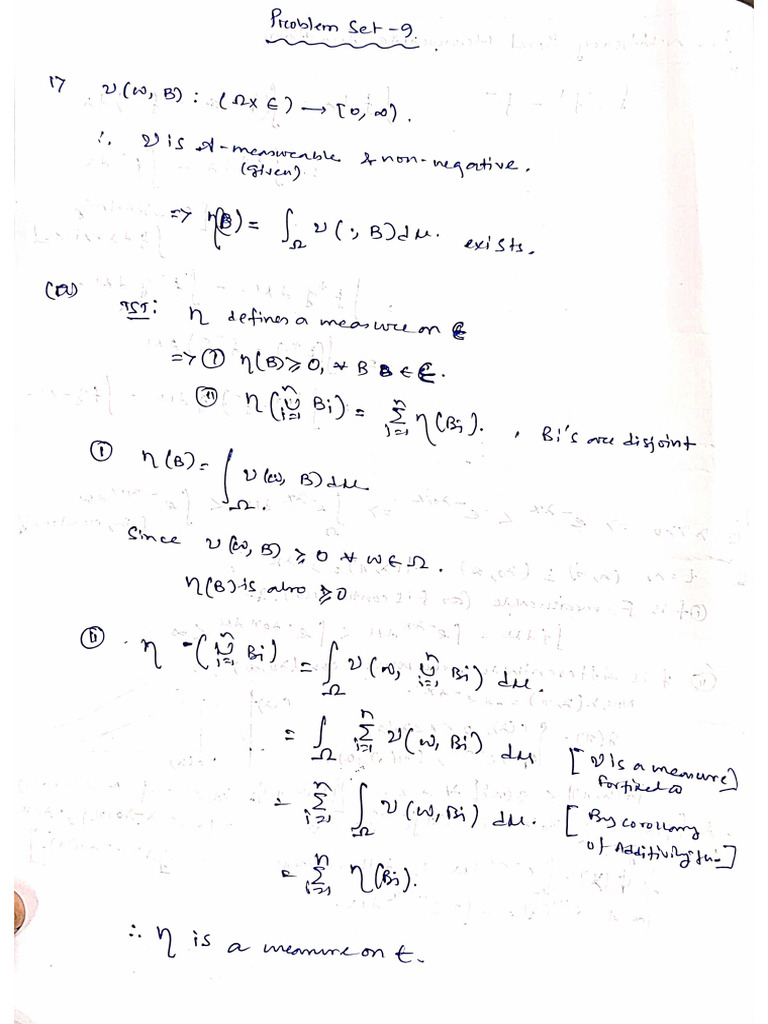 Problem Set - 9
1) ν(ω, B) : (Ω × ∈) → [0, ∞).
∴ ν is A-measurable & non-negative.
(given)
=> η(B) = ∫_Ω ν(·, B) dμ. exists.
(a) TST: η defines a measure on C
=> (i) η(B) ≥ 0, ∀ B ∈ C.
(ii) η(∪_{i=1}^{n} Bi) = Σ_{i=1}^{n} η(Bi). , Bi's are disjoint
(i) η(B) = ∫_Ω ν(ω, B) dμ
Since ν(ω, B) ≥ 0 ∀ ω ∈ Ω.
η(B) is also ≥ 0
(ii) η (∪_{i=1}^{n} Bi) = ∫_Ω ν(ω, ∪_{i=1}^{n} Bi) dμ.
= ∫_Ω Σ_{i=1}^{n} ν(ω, Bi) dμ [ν is a measure for fixed ω]
= Σ_{i=1}^{n} ∫_Ω ν(ω, Bi) dμ. [By corollary of Additivity]
= Σ_{i=1}^{n} η(Bi).
∴ η is a measure on C.